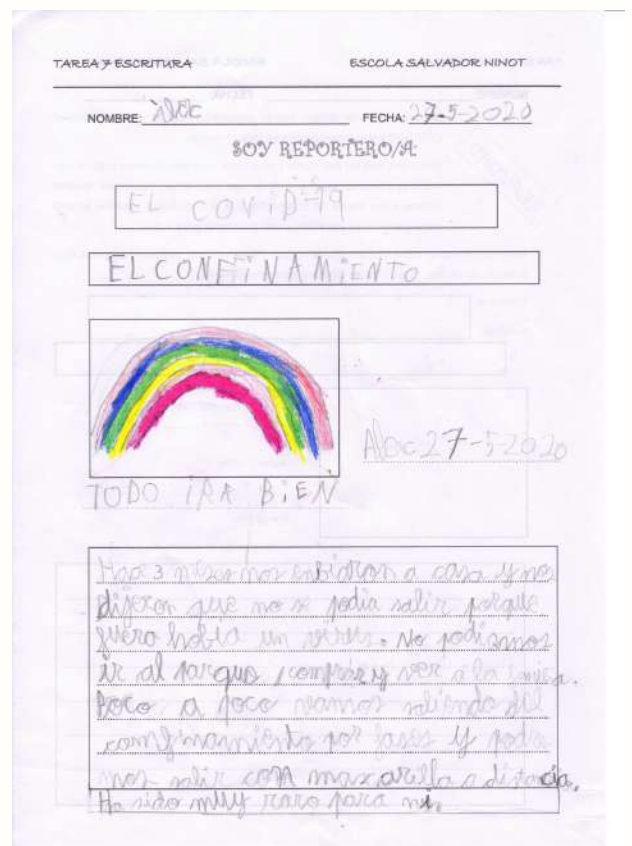 TAREA 7 ESCRITURA ESCOLA SALVADOR NINOT
NOMBRE: Àloc FECHA: 27-5-2020
SOY REPORTERO/A:
EL COVID-19
EL CONFINAMIENTO
Aloc 27-5-2020
TODO IRA BIEN
3 meses nos enbiaron a casa y nos
dijeron que no se podia salir porque
fuera habia un virus. No podiamos
ir al parque, comprar y ver a la
Poco a poco vamos saliendo del
confinamiento por fases y pode
mos salir con mascarilla a distacia.
Ha sido muy raro para mi.